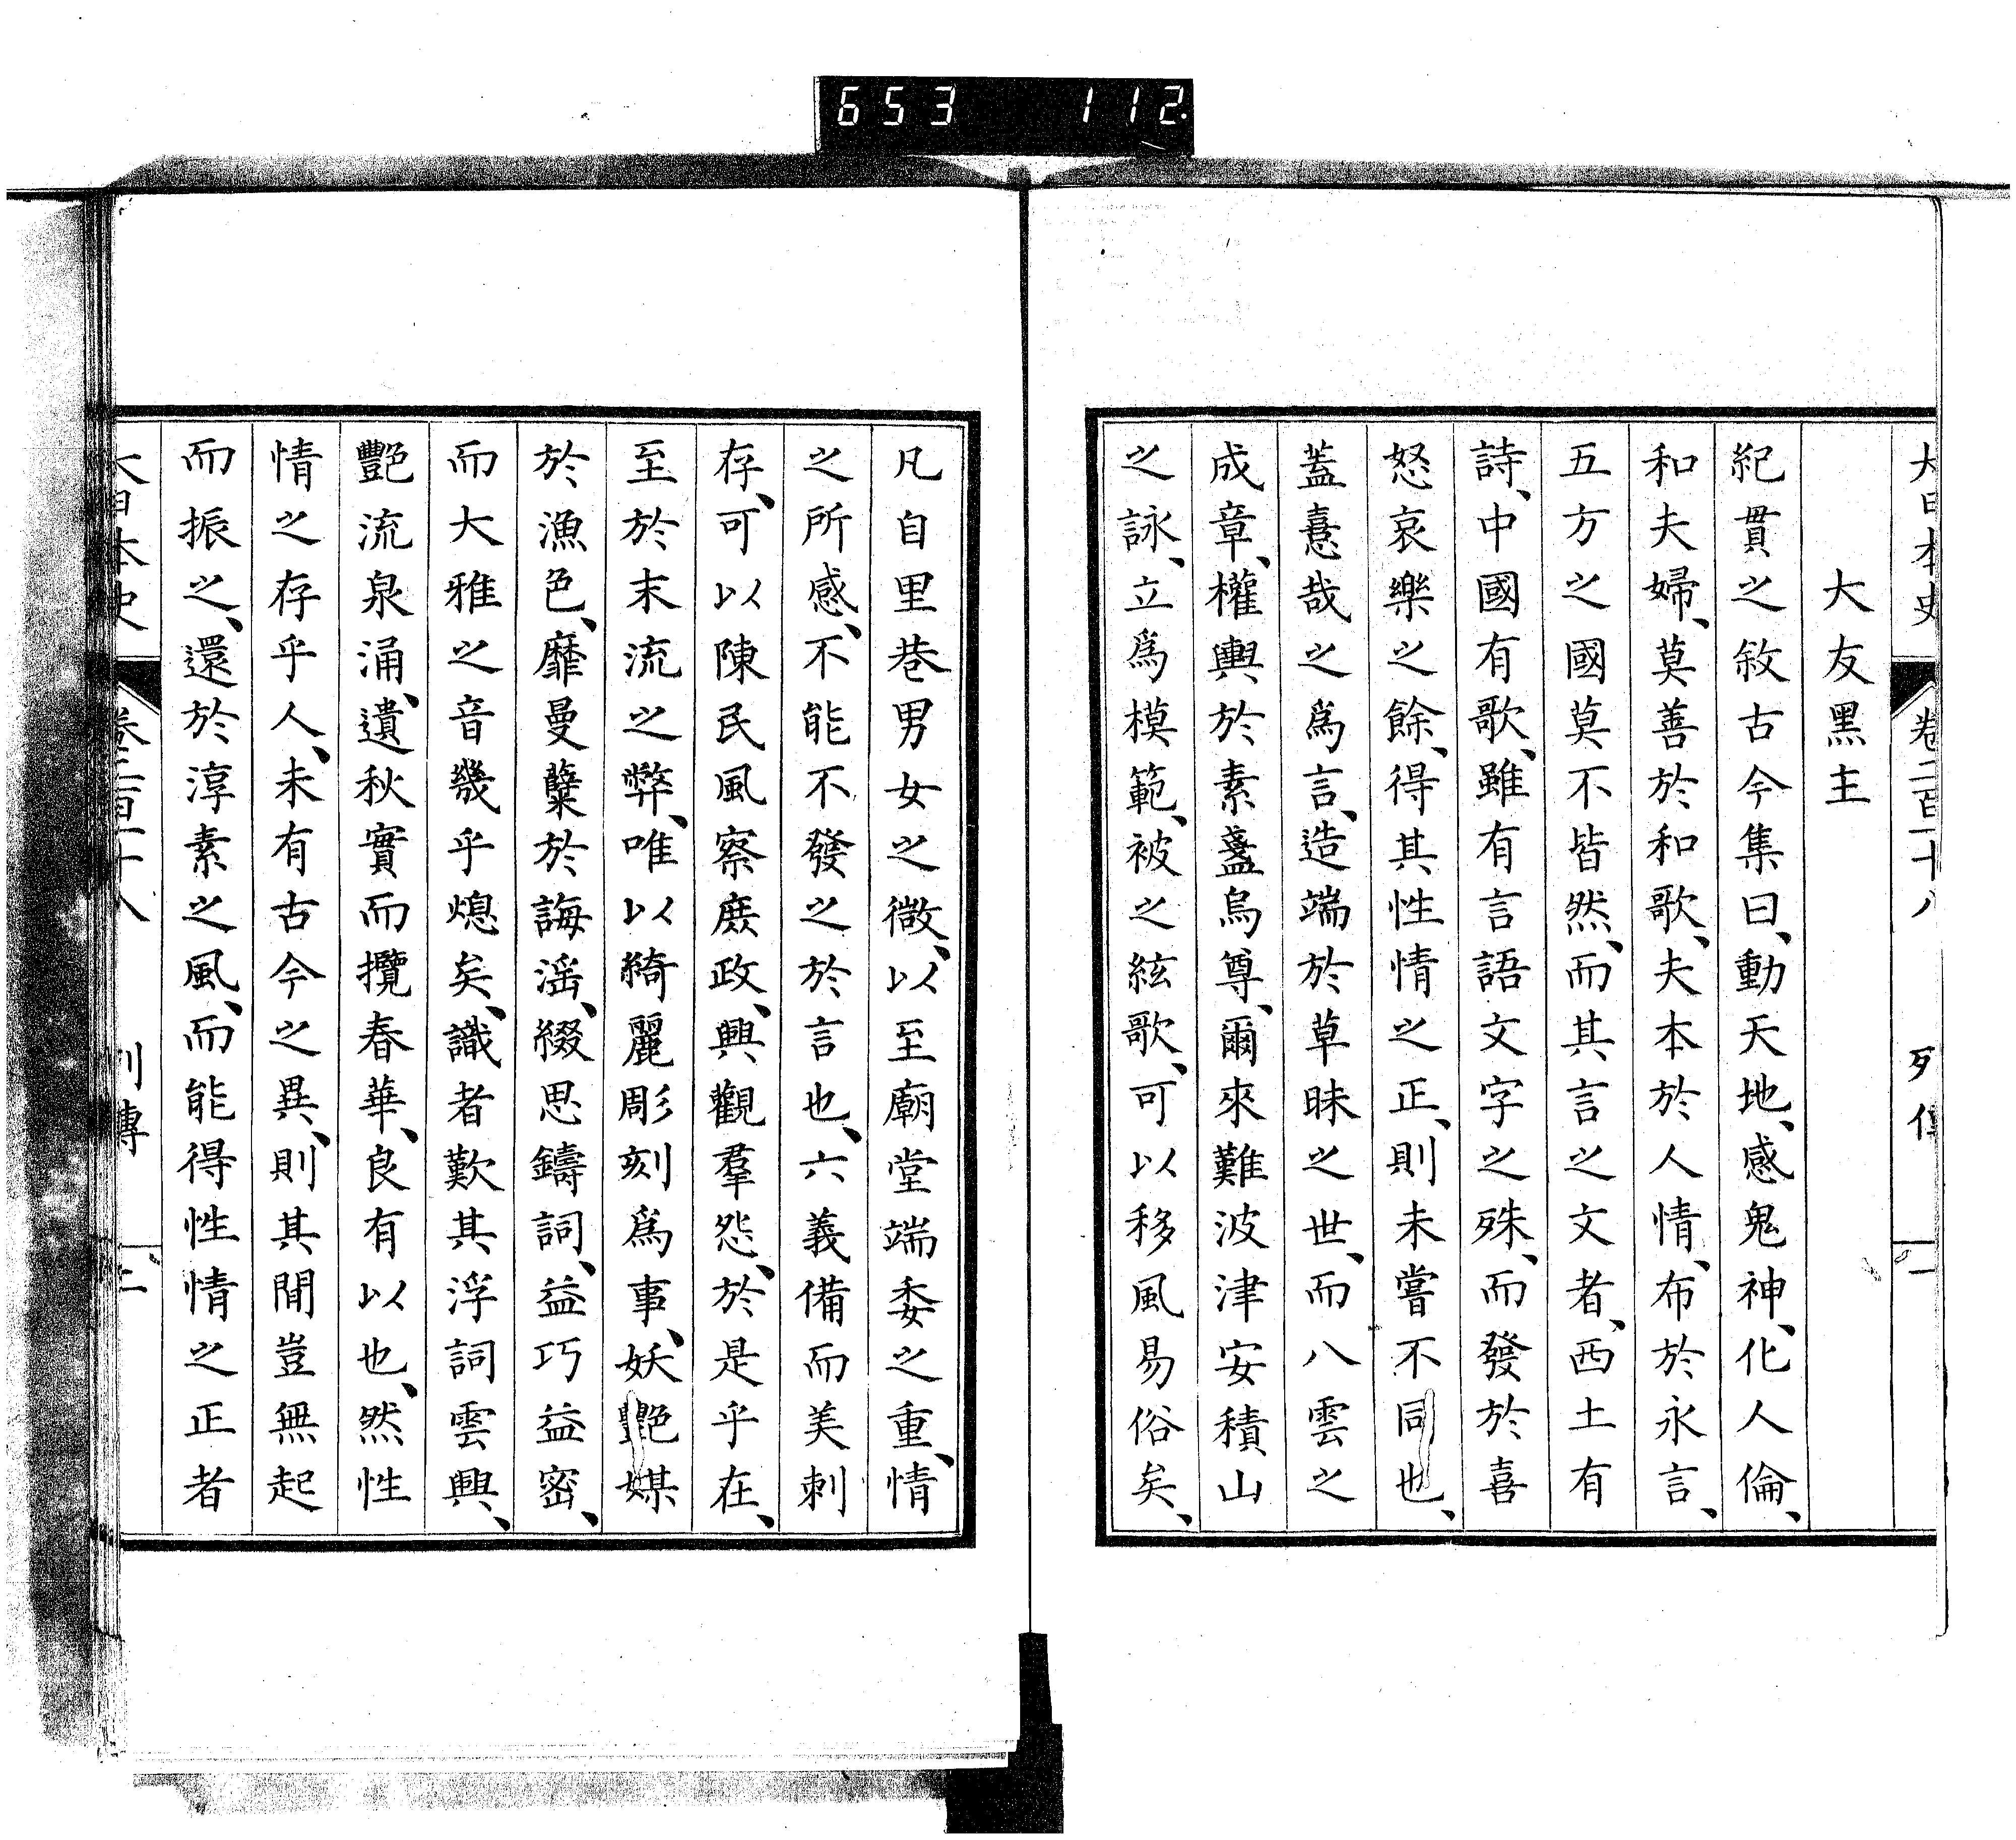 653 112
大日本史 卷二百十八 列傳 一
大友黑主
紀貫之敘古今集曰、動天地、感鬼神、化人倫、
和夫婦、莫善於和歌、夫本於人情、布於永言、
五方之國莫不皆然、而其言之文者、西土有
詩、中國有歌、雖有言語文字之殊、而發於喜
怒哀樂之餘、得其性情之正、則未嘗不同也、
蓋憙哉之爲言、造端於草昧之世、而八雲之
成章、權輿於素盞烏尊、爾來難波津安積山
之詠、立爲模範、被之絃歌、可以移風易俗矣、
凡自里巷男女之微、以至廟堂端委之重、情
之所感、不能不發之於言也、六義備而美刺
存、可以陳民風察庶政、興觀羣怨、於是乎在、
至於末流之弊、唯以綺麗彫刻爲事、妖艷媒
於漁色、靡曼蘖於誨滛、綴思鑄詞、益巧益密、
而大雅之音幾乎熄矣、識者歎其浮詞雲興、
艷流泉涌、遺秋實而攬春華、良有以也、然性
情之存乎人、未有古今之異、則其間豈無起
而振之、還於淳素之風、而能得性情之正者
大日本史 卷二百十八 列傳 二